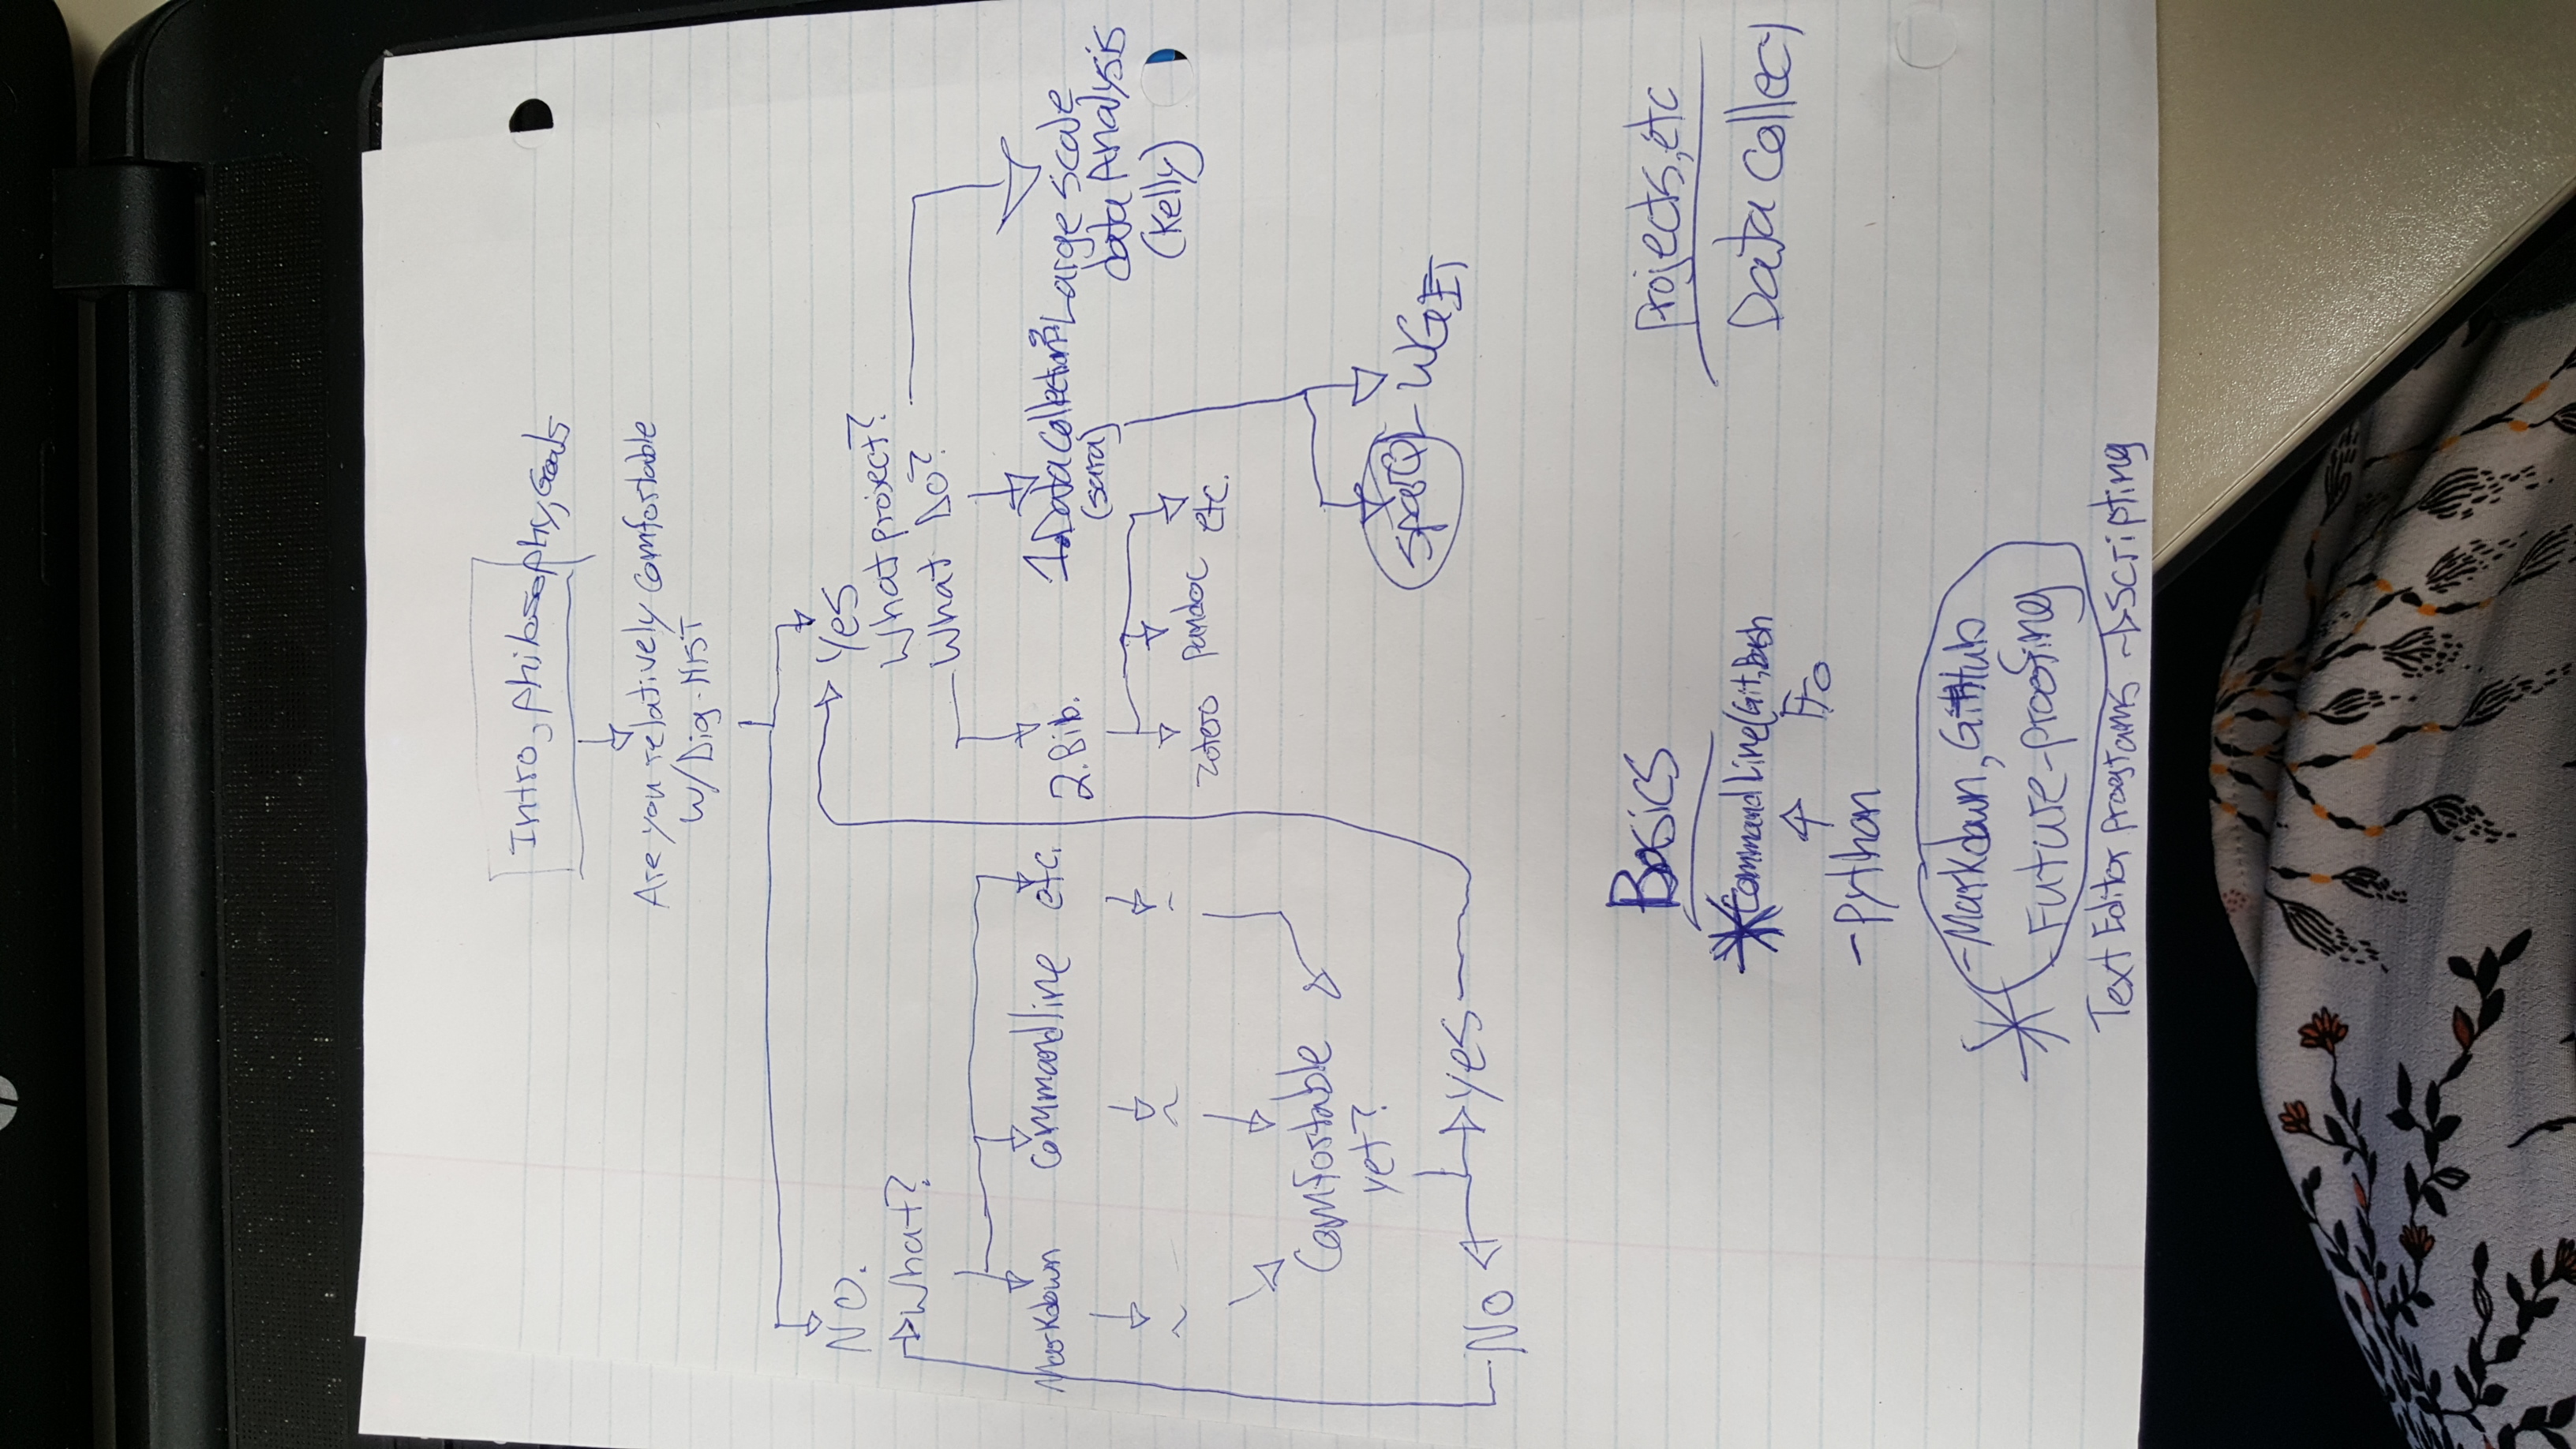 Intro, philosophy, Goals
Are you relatively comfortable
w/Dig. HIST
NO.
What?
Markdown
Commandline
etc.
Comfortable
yet?
No
yes
Yes
What project?
What Do?
2. Bib.
Zotero
Pandoc
etc.
1. Data Collection
(sara)
SparQL
WGET
3. Large scale
data Analysis
(Kelly)
Basics
Command Line (Git, Bash
- Python
- Markdown, GitHub
- Future-proofing
Text Editor programs → scripting
Projects, etc
Data Collect